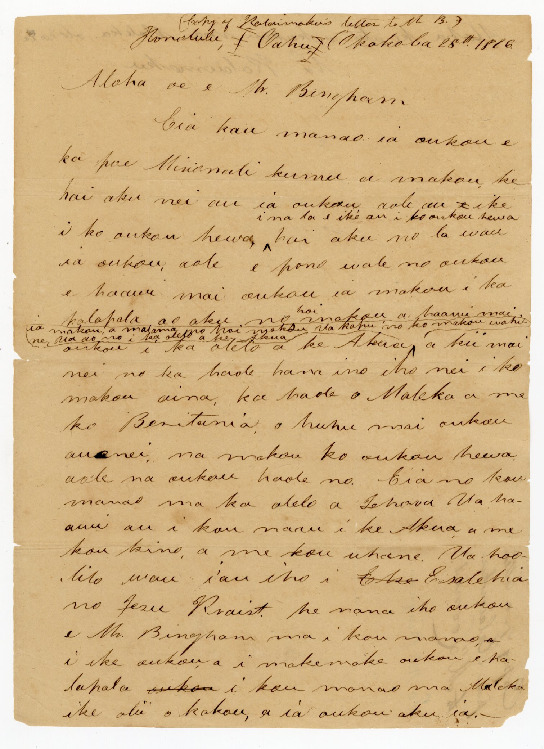 (Copy of Kalaimoku's letter to Mr B.)
Honolulu, (Oahu) Okakoba 28th 1826
Aloha oe e Mr. Bingham
Eia kau manao ia oukou e
ka poe Misionali kumu a makou, ke
hai aku nei au ia oukou, aole au i ike
ina la s ike au i ko oukou hewa
i ko oukou hewa, hai aku no la wau
ia oukou, aole e pono wale no oukou
e haawi mai oukou ia makou i ka
palapala ao aku no makou a haawi mai
hai
ia makou, a malama no hoi makou, Ua kapu no ko makou wahi
ne, Ua ao no i ka olelo a ke Akua
oukou i ka olelo a ke Akua, a kii mai
nei no ka haole hana ino iho nei i ko
makou aina, ka haole o Maleka a me
ko Beritania, o huhu mai oukou
auanei, na makou ko oukou hewa
aole na oukou haole no. Eia no kou
manao ma ka olelo a Iehova Ua ha-
awi au i kou naau i ke Akua, a me
kou kino, a me kou uhane, Ua hoo-
lilo wau i'au iho i Ekalesia
no Jesu Kraist. he nana iho oukou
e Mr. Bingham ma i kou manao, a
i ike oukou a i makemake oukou e pa-
lapala oukou i kou manao ma Maleka
ike alii o kakou, a ia oukou aku ia,